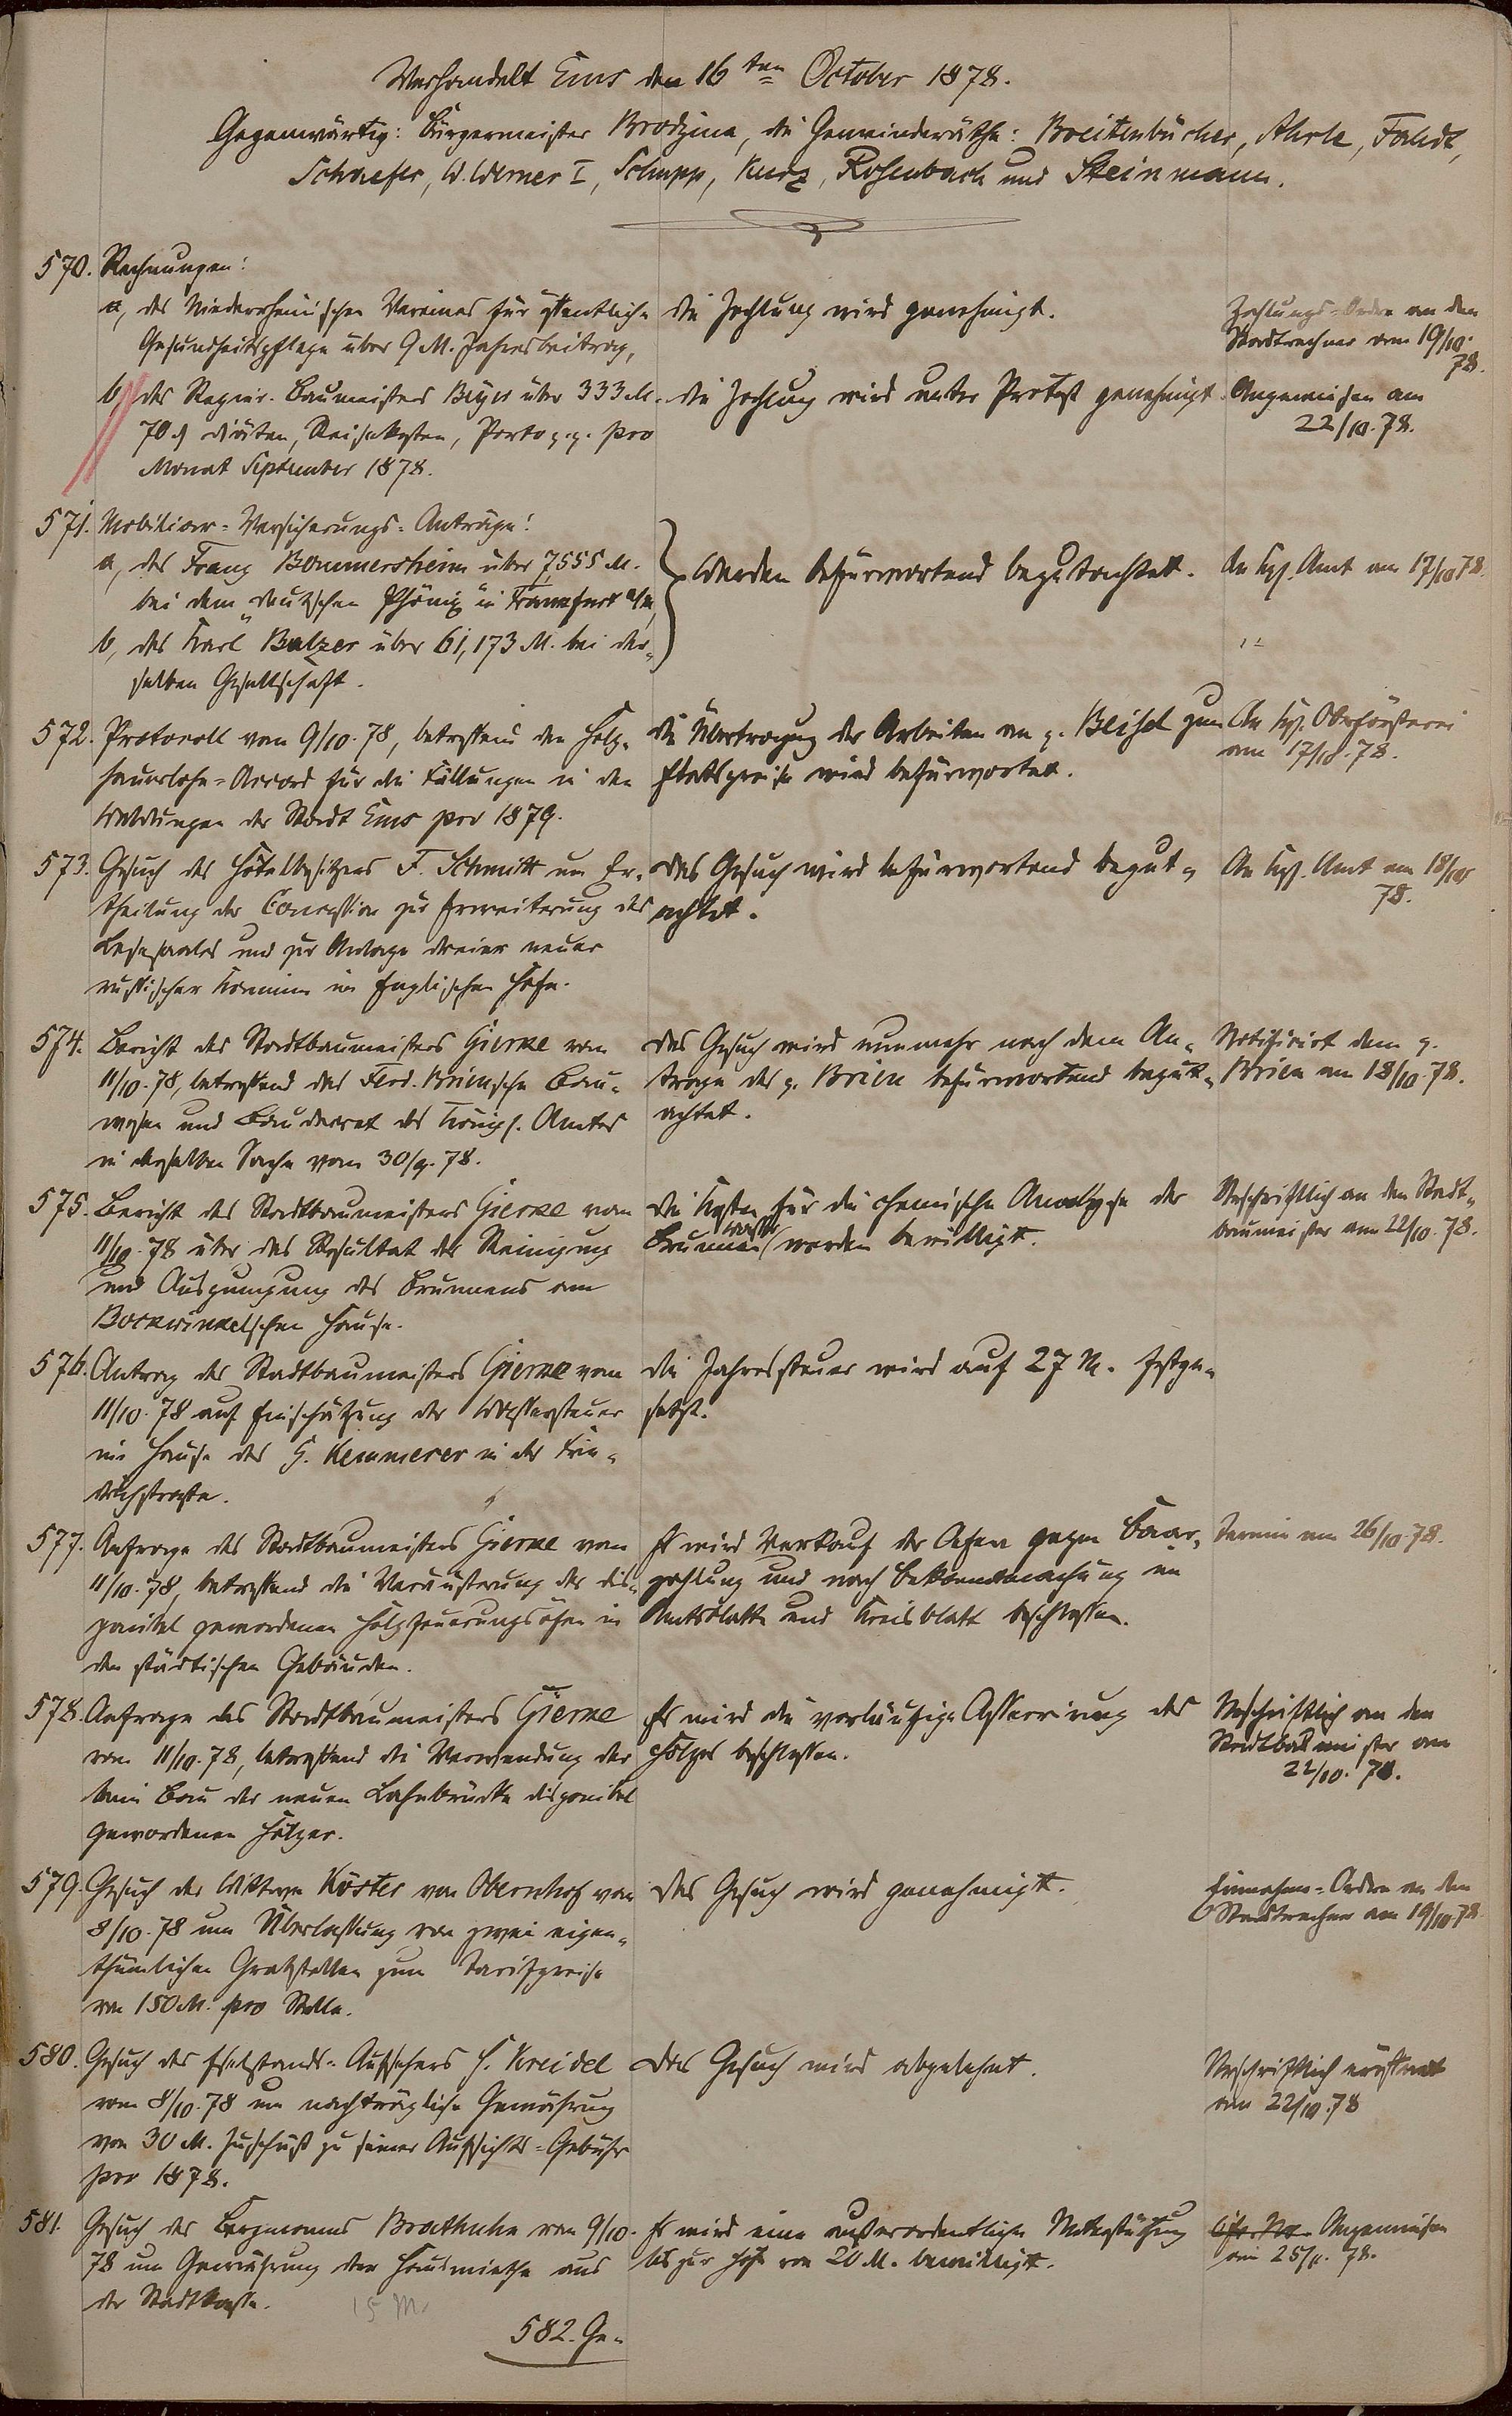 Verhandelt Ems den 16ten October 1878.
Gegenwärtig: Bürgermeister Brodzina, die Gemeinderäthe: Breitenbücher, Ahrle, Faldt,
Schaefer, W. Werner I, Schupp, Kurz, Rosenbach und Steinmann.
570. Rechnungen:
a, des Niederrheinischen Vereines für öffentliche
Gesundheitspflege über 9 M. Jahresbeitrag,
die Zahlung wird genehmigt.
Zahlungs-Ordre an den
Stadtrechner vom 19/10.
78.
b, des Regier. Baumeisters Beyer über 333 M.
70 ₰ Diäten, Reisekosten, Porto p.p. pro
Monat September 1878.
die Zahlung wird unter Protest genehmigt.
Angewiesen am
22/10.78.
571. Mobiliar-Versicherungs-Anträge:
a, des Franz Bommersheim über 7555 M.
bei dem „deutschen Phönix“ in Frankfurt a/M,
b, des Karl Balzer über 61,173 M. bei der-
selben Gesellschaft.
Werden befürwortend begutachtet.
An Kgl. Amt am 17/10 78.
572. Protocoll vom 9/10.78, betreffend den Holz-
hauerlohn-Accord für die Fällungen in den
Waldungen der Stadt Ems pro 1879.
die Übertragung der Arbeiten an p. Bleisel zum
Etatspreise wird befürwortet.
An Kgl. Oberförsterei
am 17/10.78.
573. Gesuch des Hôtelbesitzers F. Schmitt um Er-
theilung der Concession zur Erweiterung des
Lesesaales und zur Anlage dreier neuer
russischer Kamine im Englischen Hofe.
das Gesuch wird befürwortend begut-
achtet.
An Kgl. Amt am 18/10
78.
574. Bericht des Stadtbaumeisters Gierke vom
11/10.78, betreffend das Ferd. Brien'sche Bau-
wesen und Baudecret des Königl. Amtes
in derselben Sache vom 30/9.78.
das Gesuch wird nunmehr nach dem An-
trage des p. Brien befürwortend begut-
achtet.
Notificirt dem p.
Brien am 18/10.78.
575. Bericht des Stadtbaumeisters Gierke vom
11/10.78 über das Resultat der Reinigung
und Auspumpung des Brunnens am
Bockwinkel'schen Hause.
die Kosten für die chemische Analyse des
Brunnenwassers werden bewilligt.
Abschriftlich an den Stadt-
baumeister am 22/10.78.
576. Antrag des Stadtbaumeisters Gierke vom
11/10.78 auf Einschätzung der Wassersteuer
im Hause des G. Kemmerer in der Frie-
drichstraße.
die Jahressteuer wird auf 27 M. festge-
setzt.
577. Anfrage des Stadtbaumeisters Gierke vom
11/10.78, betreffend die Veräußerung der dis-
ponibel gewordenen Holzfeuerungsöfen in
den städtischen Gebäuden.
Es wird Verkauf der Oefen gegen Baar-
zahlung und nach Bekanntmachung im
Amtsblatte und Kreisblatt beschlossen.
Termin am 26/10.78.
578. Anfrage des Stadtbaumeisters Gierke
vom 11/10.78, betreffend die Verwendung der
beim Bau der neuen Lahnbrücke disponibel
gewordenen Hölzer.
Es wird die vorläufige Asservirung des
Holzes beschlossen.
Abschriftlich an den
Stadtbaumeister am
22/10.78.
579. Gesuch der Wittwe Köster von Obernhof vom
8/10.78 um Überlassung von zwei eigen-
thümlichen Grabstellen zum Tarifpreise
von 150 M. pro Stelle.
das Gesuch wird genehmigt.
Einnahme-Ordre an den
Stadtrechner am 19/10.78.
580. Gesuch des Eselstands-Aufsehers H. Kreidel
vom 8/10.78 um nachträgliche Gewährung
von 30 M. Zuschuß zu seiner Aufsichts-Gebühr
pro 1878.
das Gesuch wird abgelehnt.
Abschriftlich eröffnet
am 22/10.78
581. Gesuch des Bergmanns Brathuhn vom 9/10.
78 um Gewährung der Hausmiethe aus
der Stadtkasse.
15 M.
Es wird eine außerordentliche Unterstützung
bis zur Höhe von 20 M. bewilligt.
Angewiesen
am 25/11.78.
582. Ge-